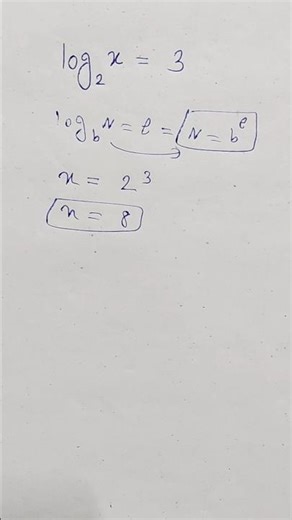 log₂ x = 3
log_b N = e = N = b^e
x = 2³
x = 8